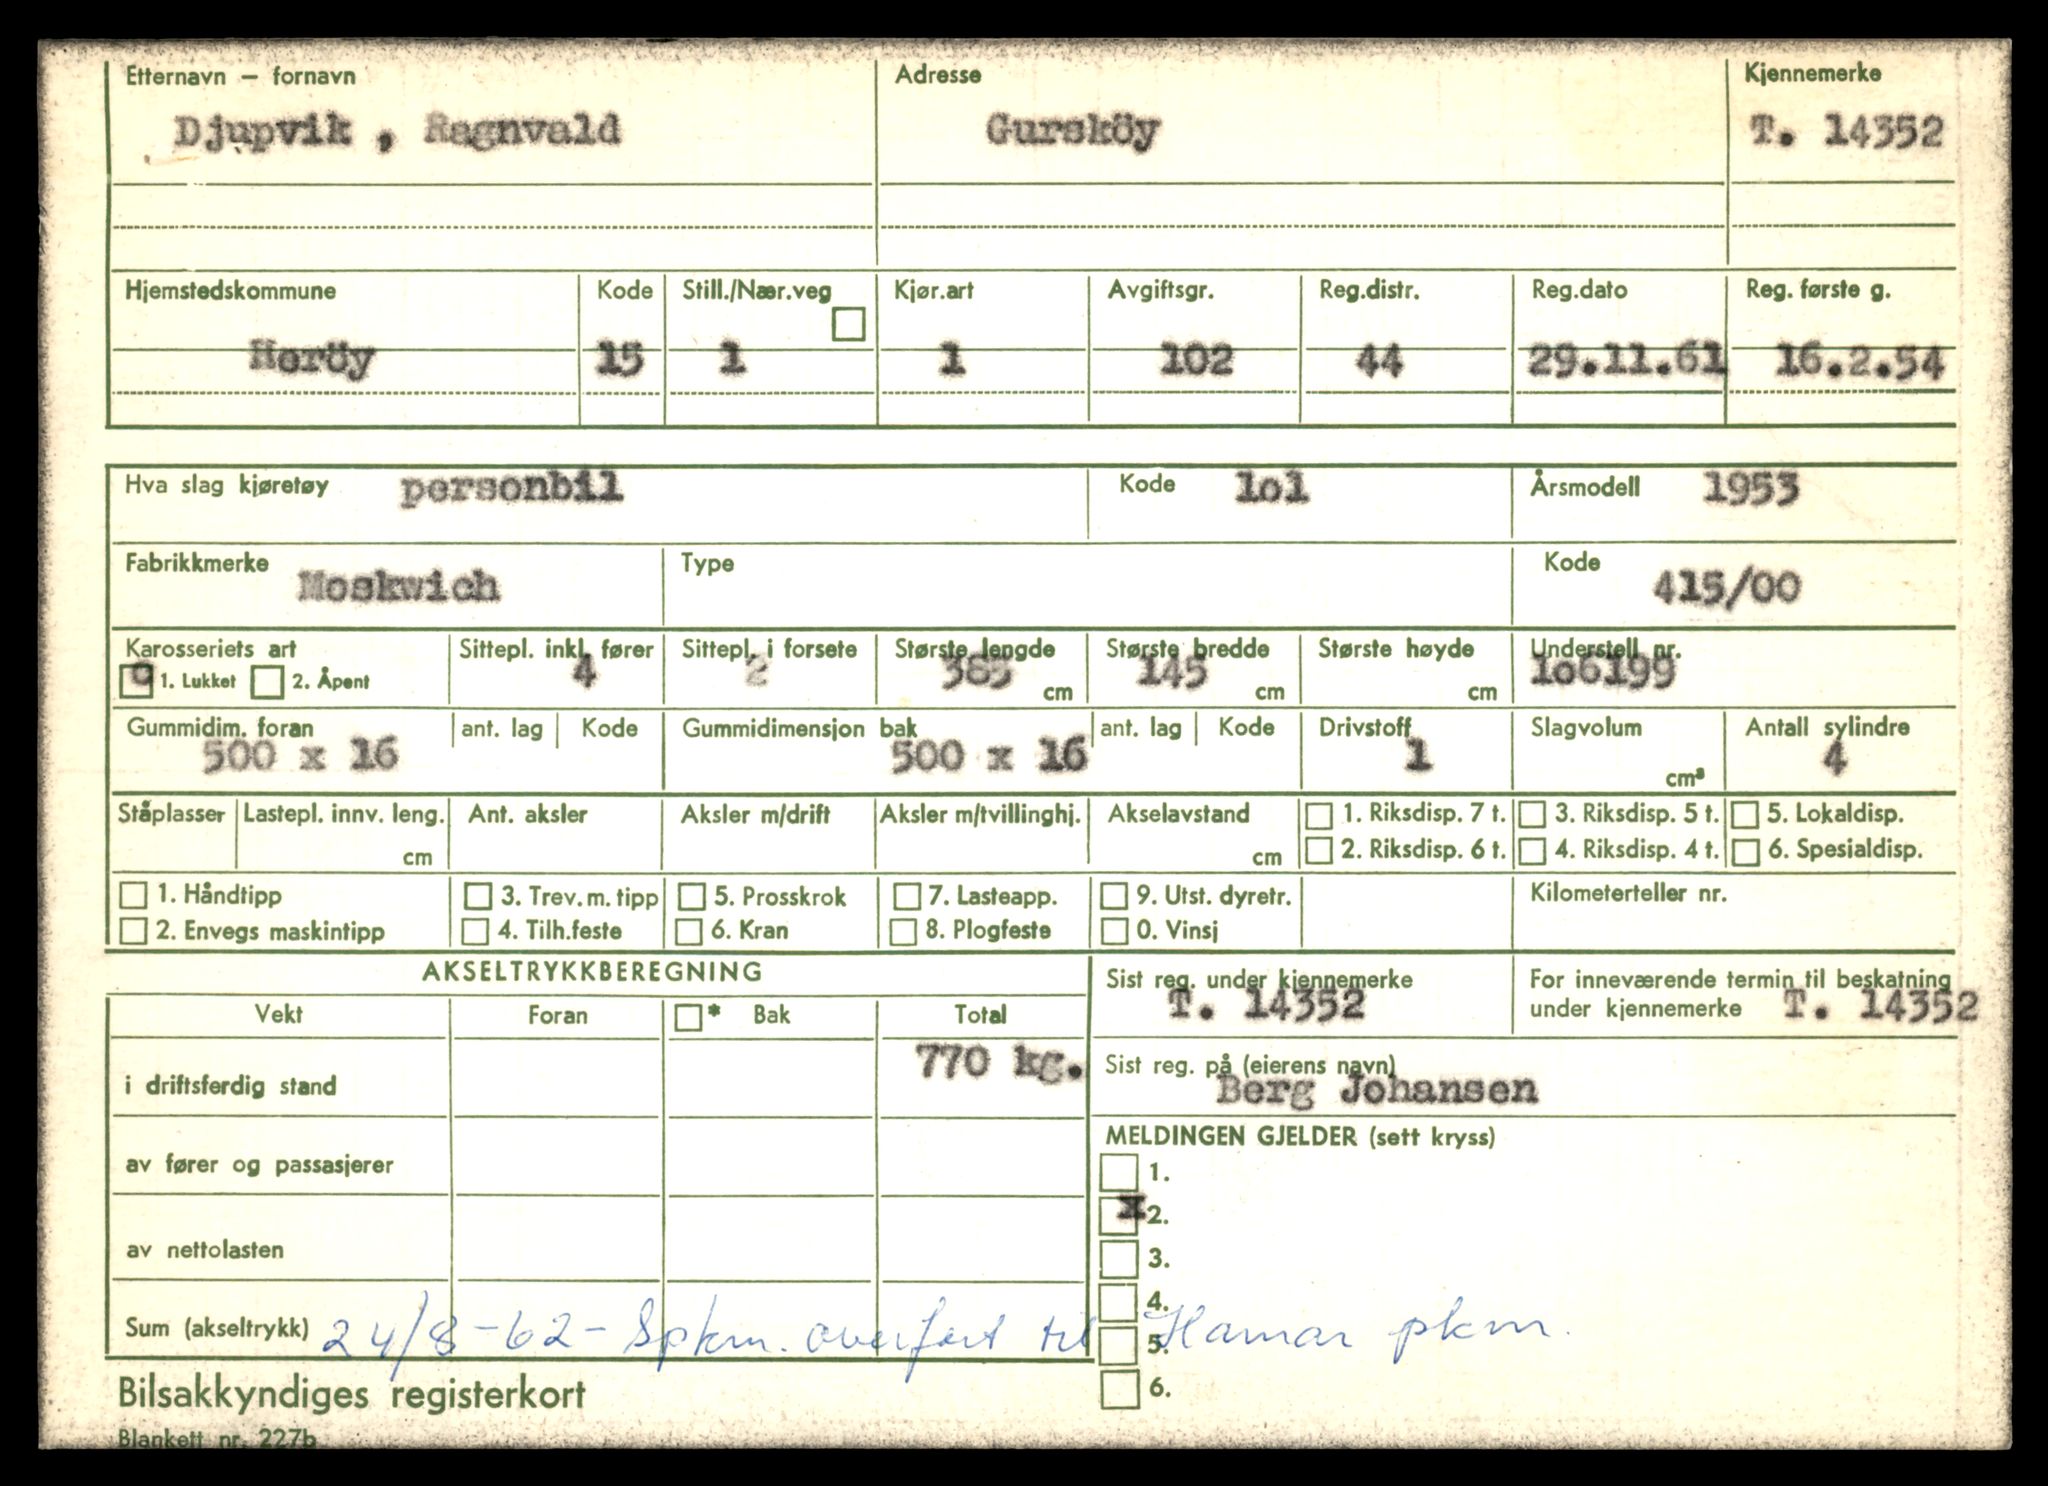 Etternavn — fornavn Adresse Kjennemerke
Djupvik , Ragnvald Gursköy T. 14352
Hjemstedskommune Kode Still./Nær.veg Kjør.art Avgiftsgr. Reg.distr. Reg.dato Reg. første g.
Heröy 15 1 1 102 44 29.11.61 16.2.54
Hva slag kjøretøy personbil Kode lol Årsmodell 1953
Fabrikkmerke Type Kode
Moskwich 415/00
Karosseriets art Sittepl. inkl. fører Sittepl. i forsete Største lengde Største bredde Største høyde Understell nr.
1. Lukket 2. Åpent 4 2 385 cm 145 cm cm 1o6199
Gummidim. foran ant. lag Kode Gummidimensjon bak ant. lag Kode Drivstoff Slagvolum Antall sylindre
500 x 16 500 x 16 1 cm³ 4
Ståplasser Lastepl. innv. leng. Ant. aksler Aksler m/drift Aksler m/tvillinghj. Akselavstand 1. Riksdisp. 7 t. 3. Riksdisp. 5 t. 5. Lokaldisp.
cm cm 2. Riksdisp. 6 t. 4. Riksdisp. 4 t. 6. Spesialdisp.
1. Håndtipp 3. Trev. m. tipp 5. Prosskrok 7. Lasteapp. 9. Utst. dyretr. Kilometerteller nr.
2. Envegs maskintipp 4. Tilh.feste 6. Kran 8. Plogfeste 0. Vinsj
AKSELTRYKKBEREGNING Sist reg. under kjennemerke For inneværende termin til beskatning
T. 14352 under kjennemerke T. 14352
Vekt Foran * Bak Total
i driftsferdig stand 770 kg. Sist reg. på (eierens navn)
Berg Johansen
MELDINGEN GJELDER (sett kryss)
av fører og passasjerer 1.
x 2.
av nettolasten 3.
4.
Sum (akseltrykk) 24/8-62- Spkm. overført til Hamar pkm.
5.
6.
Bilsakkyndiges registerkort
Blankett nr. 227b